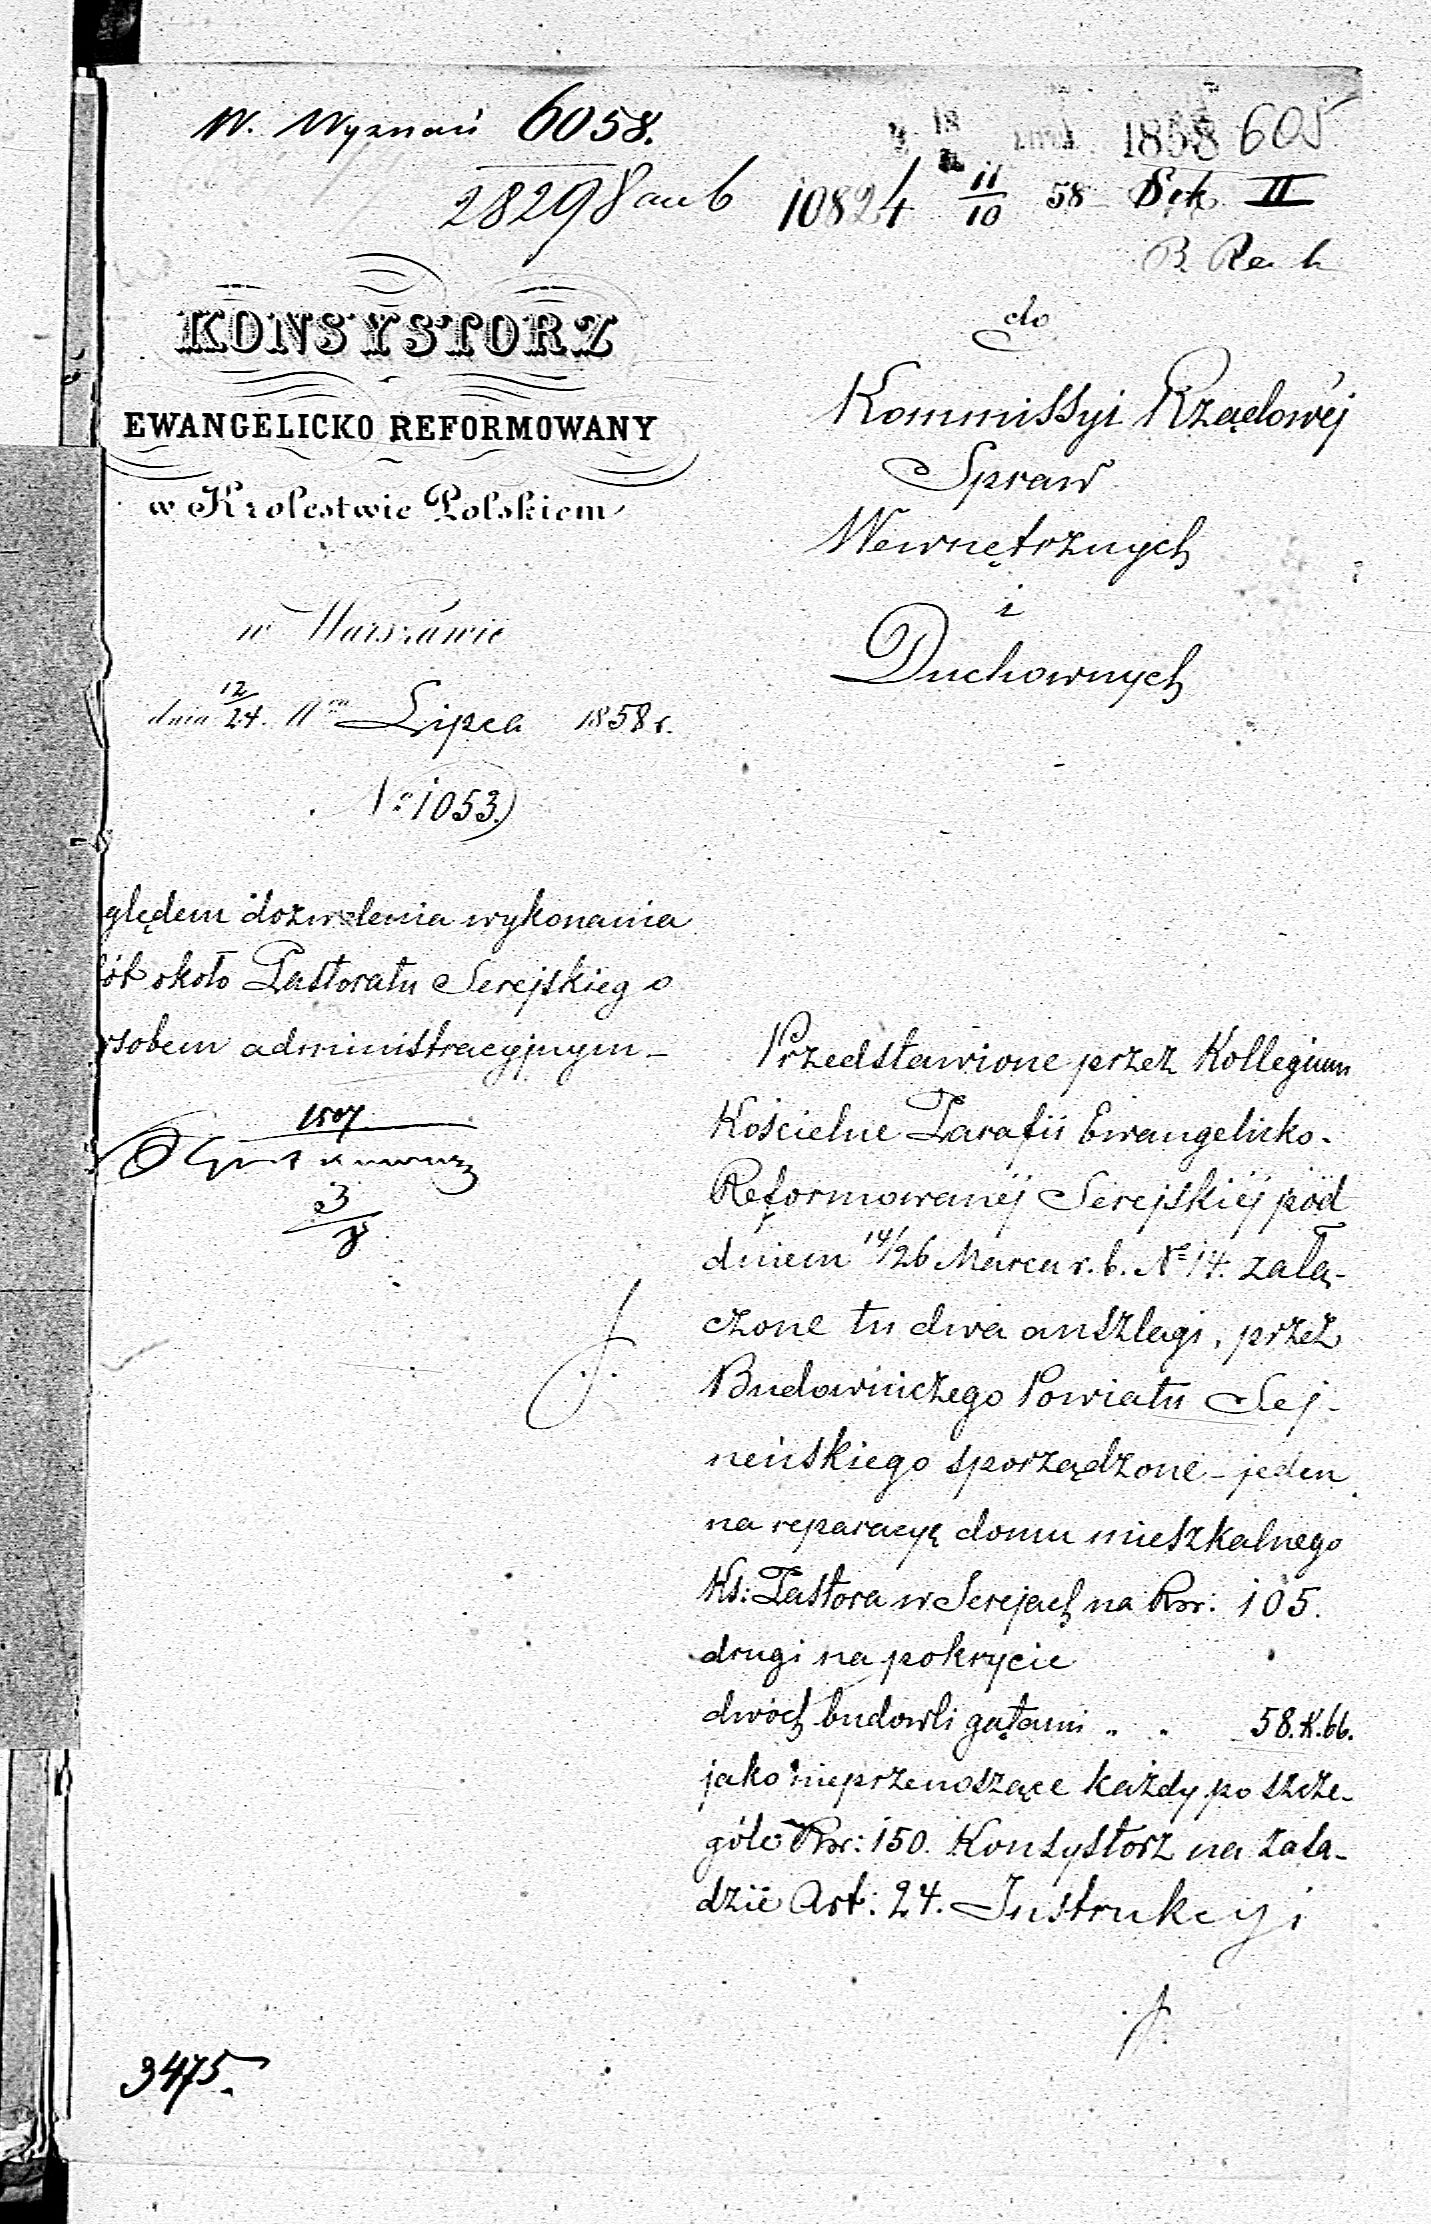 W. Wyznań 6058.
28298
10824 11/10 58 Sek II
1858 605
KONSYSTORZ
EWANGELICKO REFORMOWANY
w Krolestwie Polskiem
w Warszawie
dnia 12/24. Lipca 1858 r.
No 1053.
do
Kommissyi Rządowéj
Spraw
Wewnętrznych
i
Duchownych
ględem dozwolenia wykonania
ót około Pastoratu Serejskiego
osobem administracyjnym
1507
3/8
Przedstawione przez Kollegium
Kościelne Parafii Ewangelicko-
Reformowanéj Serejskiéj pod
dniem 14/26 Marca r. b. No 14. załą-
czone tu dwa anszlagi, przez
Budowniczego Powiatu Sej-
neńskiego sporządzone – jeden
na reparacyę domu mieszkalnego
Ks: Pastora w Serejach na Rsr: 105.
drugi na pokrycie
dwóch budowli gątami „ „ 58. K. 66.
jako nieprzenoszące każdy po szcze-
góle Rsr: 150. Konsystorz na zasa-
dzie Art: 24. Instrukcyi
3475.